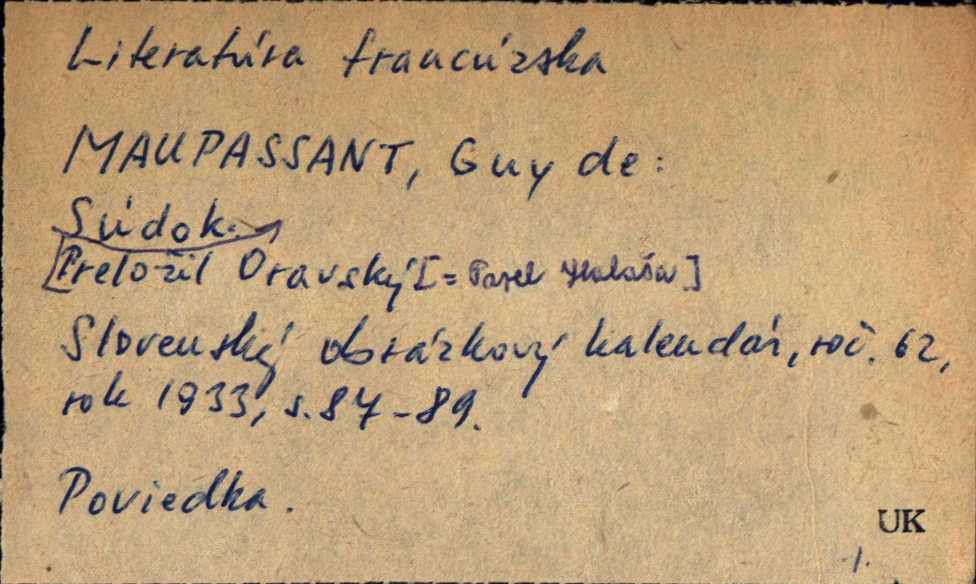 Literatúra francúzska
MAUPASSANT, Guy de:
Súdok.
Preložil Oravský [= Pavel Halaša]
Slovenský obrázkový kalendár, roč. 62,
rok 1933, s. 87-89.
Poviedka.
UK